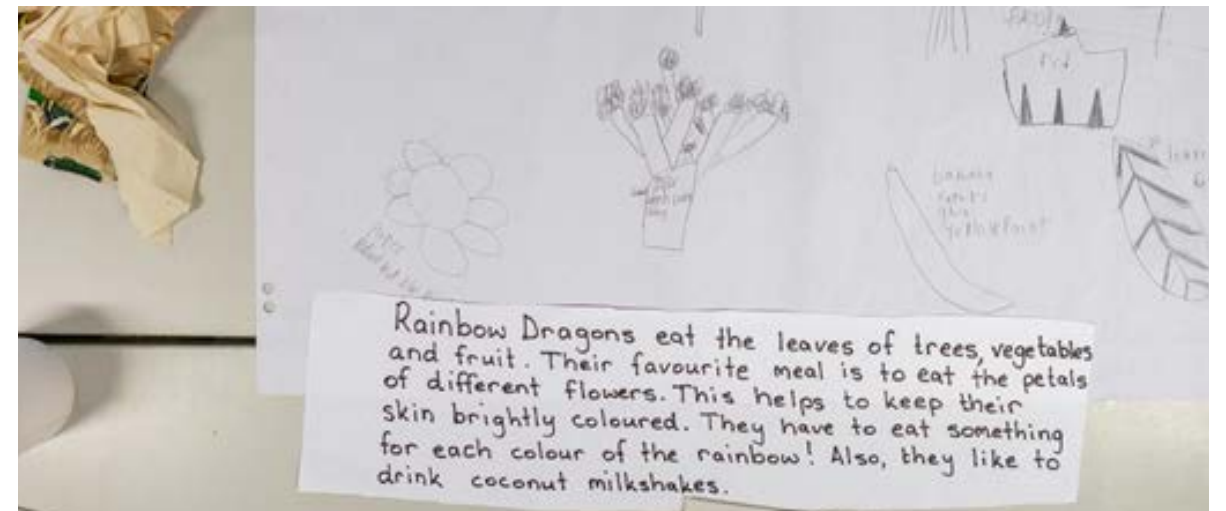 banana
Yellow Paint
Rainbow Dragons eat the leaves of trees, vegetables
and fruit. Their favourite meal is to eat the petals
of different flowers. This helps to keep their
skin brightly coloured. They have to eat something
for each colour of the rainbow! Also, they like to
drink coconut milkshakes.